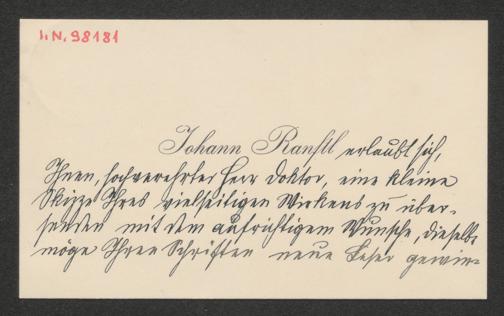 I.N. 98181
Johann Ranftl erlaubt sich,
Ihnen, hochverehrter Herr Doktor, eine kleine
Skizze Ihres vielseitigen Wirkens zu über-
senden mit dem aufrichtigen Wunsche, dieselbe
möge Ihren Schriften neue Leser gewin-